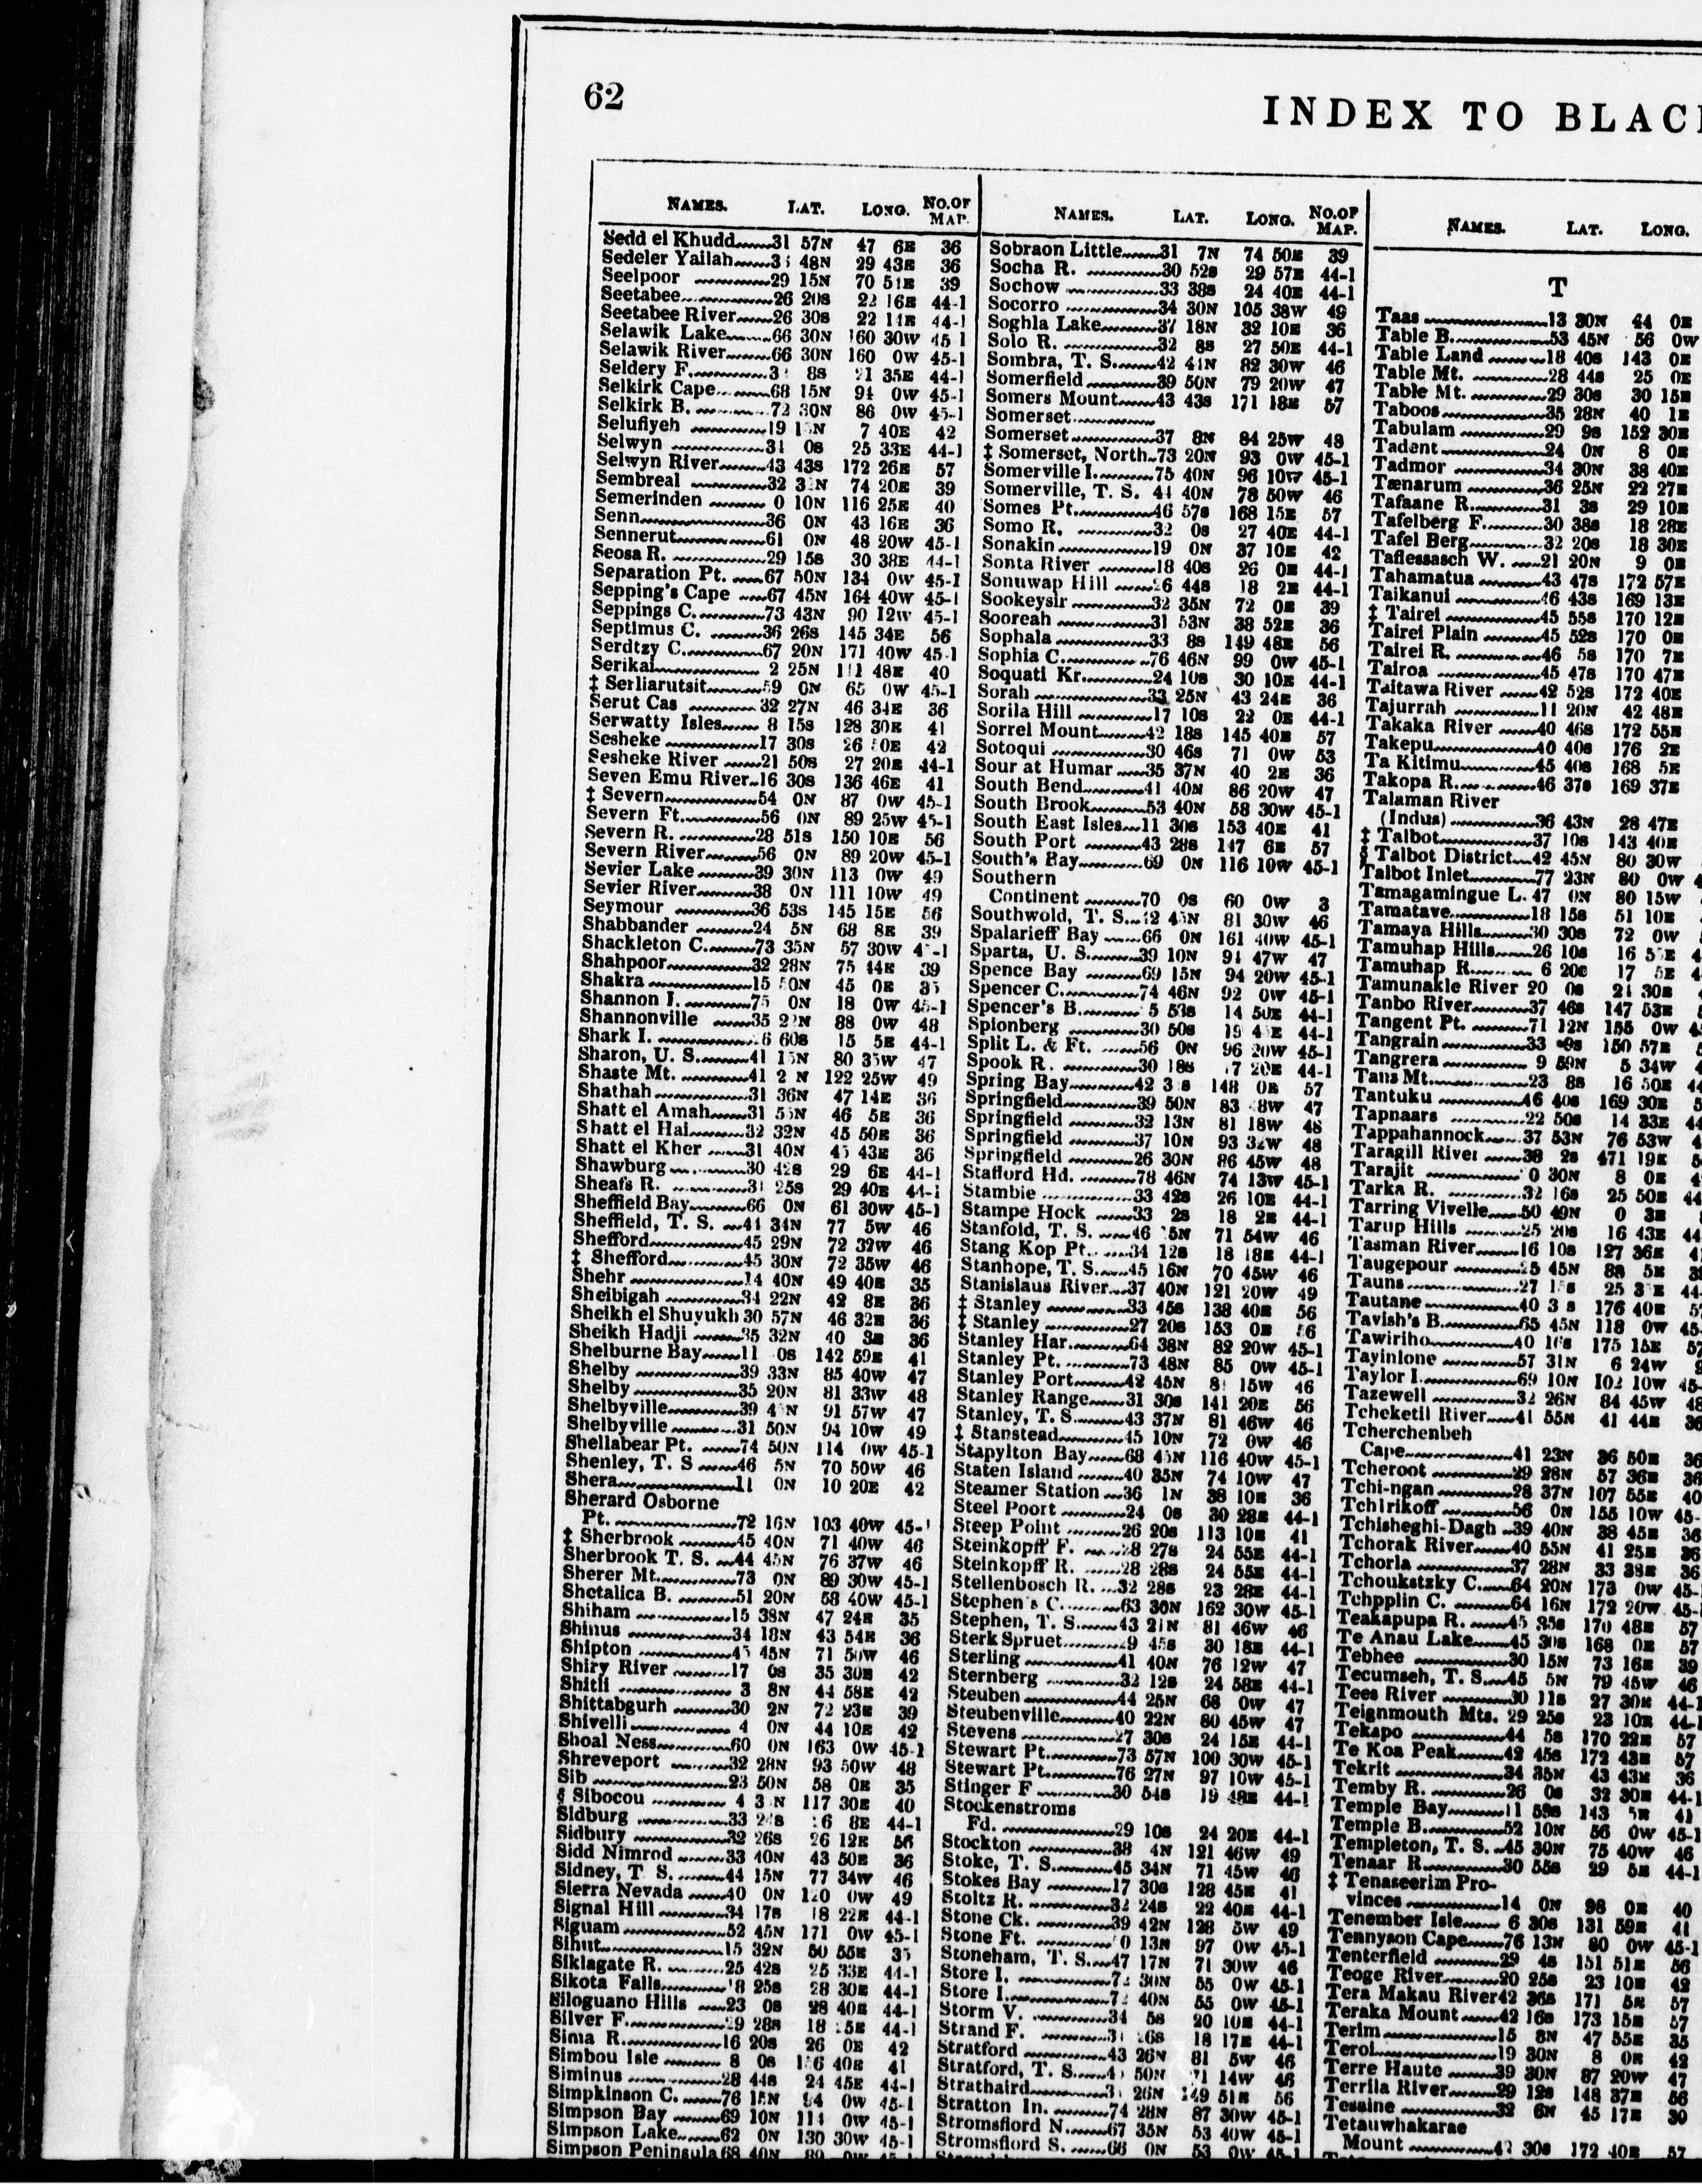 62
INDEX TO BLAC
NAMES. LAT. LONG. NO. OF MAP.
Sedd el Khudd 31 57N 47 6E 36
Sedeler Yailah 48N 29 43E 36
Seelpoor 29 15N 70 51E 39
Seetabee 26 20S 22 16E 44-1
Seetabee River 26 30S 22 14E 44-1
Selawik Lake 66 30N 160 30W 45-1
Selawik River 66 30N 160 0W 45-1
Seldery F. 8S 21 35E 44-1
Selkirk Cape 68 15N 94 0W 45-1
Selkirk B. 72 30N 86 0W 45-1
Selufiyeh 19 7 40E 42
Selwyn 31 0S 25 33E 44-1
Selwyn River 43 43S 172 26E 57
Sembreal 32 74 20E 39
Semerinden 0 10N 116 25E 40
Senn 36 0N 43 16E 36
Sennerut 61 0N 48 20W 45-1
Seosa R. 29 15S 30 38E 44-1
Separation Pt. 67 50N 134 0W 45-1
Sepping's Cape 67 45N 164 40W 45-1
Seppings C. 73 43N 90 12W 45-1
Septimus C. 36 26S 145 34E 56
Serdtzy C. 67 20N 171 40W 45-1
Serikai 2 25N 111 48E 40
‡ Serliarutsit 59 0N 65 0W 45-1
Serut Cas 32 27N 46 34E 36
Serwatty Isles 8 15S 128 30E 41
Sesheke 17 30S 26 50E 42
Sesheke River 21 50S 27 20E 44-1
Seven Emu River 16 30S 136 46E 41
‡ Severn 54 0N 87 0W 45-1
Severn Ft. 56 0N 89 25W 45-1
Severn R. 28 51S 150 10E 56
Severn River 56 0N 89 20W 45-1
Sevier Lake 39 30N 113 0W 49
Sevier River 38 0N 111 10W 49
Seymour 36 53S 145 15E 56
Shabbander 24 5N 68 8E 39
Shackleton C. 73 35N 57 30W
Shahpoor 32 28N 75 44E 39
Shakra 15 50N 45 0E 35
Shannon I. 75 0N 18 0W 45-1
Shannonville 35 88 0W 48
Shark I. 60S 15 5E 44-1
Sharon, U. S. 41 15N 80 35W 47
Shaste Mt. 41 122 25W 49
Shathah 31 36N 47 14E 36
Shatt el Amah 31 55N 46 5E 36
Shatt el Hai 32 32N 45 50E 36
Shatt el Kher 31 40N 45 43E 36
Shawburg 30 42S 29 6E 44-1
Sheafs R. 31 25S 29 40E 44-1
Sheffield Bay 66 0N 61 30W 45-1
Sheffield, T. S. 44 34N 77 5W 46
Shefford 45 29N 72 32W 46
‡ Shefford 45 30N 72 35W 46
Shehr 14 40N 49 40E 35
Sheibigah 34 22N 42 8E 36
Sheikh el Shuyukh 30 57N 46 32E 36
Sheikh Hadji 35 32N 40 3E 36
Shelburne Bay 11 0S 142 59E 41
Shelby 39 33N 85 40W 47
Shelby 35 20N 81 33W 48
Shelbyville 39 91 57W 47
Shelbyville 31 50N 94 10W 49
Shellabear Pt. 74 50N 114 0W 45-1
Shenley, T. S 46 5N 70 50W 46
Shera 11 0N 10 20E 42
Sherard Osborne
Pt. 72 16N 103 40W 45-1
‡ Sherbrook 45 40N 71 40W 46
Sherbrook T. S. 44 45N 76 37W 46
Sherer Mt. 73 0N 89 30W 45-1
Shetalica B. 51 20N 58 40W 45-1
Shiham 15 38N 47 24E 35
Shinus 34 18N 43 54E 36
Shipton 45 45N 71 50W 46
Shiry River 17 0S 35 30E 42
Shitli 3 8N 44 58E 42
Shittabgurh 30 2N 72 23E 39
Shivelli 4 0N 44 10E 42
Shoal Ness 60 0N 163 0W 45-1
Shreveport 32 28N 93 50W 48
Sib 23 50N 58 0E 35
§ Sibocou 4 117 30E 40
Sidburg 33 8E 44-1
Sidbury 32 26S 26 12E 56
Sidd Nimrod 33 40N 43 50E 36
Sidney, T. S. 44 15N 77 34W 46
Sierra Nevada 40 0N 120 0W 49
Signal Hill 34 17S 18 22E 44-1
Siguam 52 45N 171 0W 45-1
Sihut 15 32N 50 55E 35
Siklagate R. 25 42S 25 33E 44-1
Sikota Falls 18 25S 28 30E 44-1
Siloguano Hills 23 0S 28 40E 44-1
Silver F. 29 28S 18 44-1
Sima R. 16 20S 26 0E 42
Simbou Isle 8 0S 156 40E 41
Siminus 28 44S 24 45E 44-1
Simpkinson C. 76 15N 94 0W 45-1
Simpson Bay 69 10N 114 0W 45-1
Simpson Lake 62 0N 130 30W 45-1
Simpson Peninsula 68 40N
NAMES. LAT. LONG. NO. OF MAP.
Sobraon Little 31 7N 74 50E 39
Socha R. 30 52S 29 57E 44-1
Sochow 33 38S 24 40E 44-1
Socorro 34 30N 105 38W 49
Soghla Lake 37 18N 32 10E 36
Solo R. 32 8S 27 50E 44-1
Sombra, T. S. 42 41N 82 30W 46
Somerfield 39 50N 79 20W 47
Somers Mount 43 43S 171 18E 57
Somerset
Somerset 37 8N 84 25W 48
‡ Somerset, North 73 20N 93 0W 45-1
Somerville I. 75 40N 96 10W 45-1
Somerville, T. S. 44 40N 78 50W 46
Somes Pt. 46 57S 168 15E 57
Somo R. 32 0S 27 40E 44-1
Sonakin 19 0N 37 10E 42
Sonta River 18 40S 26 0E 44-1
Sonuwap Hill 26 44S 18 2E 44-1
Sookeysir 32 35N 72 0E 39
Sooreah 31 53N 38 52E 36
Sophala 33 8S 149 48E 56
Sophia C. 76 46N 99 0W 45-1
Soquati Kr. 24 10S 30 10E 44-1
Sorah 33 25N 43 24E 36
Sorila Hill 17 10S 22 0E 44-1
Sorrel Mount 42 18S 145 40E 57
Sotoqui 30 46S 71 0W 53
Sour at Humar 35 37N 40 2E 36
South Bend 41 40N 86 20W 47
South Brook 53 40N 58 30W 45-1
South East Isles 11 30S 153 40E 41
South Port 43 28S 147 6E 57
South's Bay 69 0N 116 10W 45-1
Southern
Continent 70 0S 60 0W 3
Southwold, T. S. 42 45N 81 30W 46
Spalarieff Bay 66 0N 161 40W 45-1
Sparta, U. S. 39 10N 91 47W 47
Spence Bay 69 15N 94 20W 45-1
Spencer C. 74 46N 92 0W 45-1
Spencer's B. 53S 14 50E 44-1
Spionberg 30 50S 19 44-1
Split L. & Ft. 56 0N 96 20W 45-1
Spook R. 30 18S 17 20E 44-1
Spring Bay 42 148 0E 57
Springfield 39 50N 83 47
Springfield 32 13N 81 18W 48
Springfield 37 10N 93 32W 48
Springfield 26 30N 86 45W 48
Stafford Hd. 78 46N 74 13W 45-1
Stambie 33 42S 26 10E 44-1
Stampe Hock 33 2S 18 2E 44-1
Stanfold, T. S. 46 5N 71 54W 46
Stang Kop Pt. 34 12S 18 18E 44-1
Stanhope, T. S. 45 16N 70 45W 46
Stanislaus River 37 40N 121 20W 49
‡ Stanley 33 45S 138 40E 56
‡ Stanley 27 20S 153 0E 56
Stanley Har. 64 38N 82 20W 45-1
Stanley Pt. 73 48N 85 0W 45-1
Stanley Port 42 45N 15W 46
Stanley Range 31 30S 141 20E 56
Stanley, T. S. 43 37N 81 46W 46
‡ Stanstead 45 10N 72 0W 46
Stapylton Bay 68 45N 116 40W 45-1
Staten Island 40 35N 74 10W 47
Steamer Station 36 1N 38 10E 36
Steel Poort 24 0S 30 28E 44-1
Steep Point 26 20S 113 10E 41
Steinkopff F. 28 27S 24 55E 44-1
Steinkopff R. 28 28S 24 55E 44-1
Stellenbosch R. 32 28S 23 28E 44-1
Stephen's C. 63 30N 162 30W 45-1
Stephen, T. S. 43 21N 81 46W 46
Sterk Spruet 29 45S 30 18E 44-1
Sterling 41 40N 76 12W 47
Sternberg 32 12S 24 58E 44-1
Steuben 44 25N 68 0W 47
Steubenville 40 22N 80 45W 47
Stevens 27 30S 24 15E 44-1
Stewart Pt. 73 57N 100 30W 45-1
Stewart Pt. 76 27N 97 10W 45-1
Stinger F 30 54S 19 48E 44-1
Stockenstroms
Fd. 29 10S 24 20E 44-1
Stockton 38 4N 121 46W 49
Stoke, T. S. 45 34N 71 45W 46
Stokes Bay 17 30S 128 45E 41
Stoltz R. 32 24S 22 40E 44-1
Stone Ck. 39 42N 128 5W 49
Stone Ft. 13N 97 0W 45-1
Stoneham, T. S. 47 17N 71 30W 46
Store I. 30N 55 0W 45-1
Store I. 40N 55 0W 45-1
Storm V. 34 5S 20 10E 44-1
Strand F. 18 17E 44-1
Stratford 43 26N 81 5W 46
Stratford, T. S. 50N 71 14W 46
Strathaird 26N 149 51E 56
Stratton In. 74 28N 87 30W 45-1
Stromsfiord N. 67 35N 53 40W 45-1
Stromsfiord S. 66 0N 53 0W 45-1
NAMES. LAT. LONG.
T
Taas 13 30N 44 0E
Table B. 53 45N 56 0W
Table Land 18 40S 143 0E
Table Mt. 28 44S 25 0E
Table Mt. 29 30S 30 15E
Taboos 35 28N 40 1E
Tabulam 29 9S 152 30E
Tadent 24 0N 8 0E
Tadmor 34 30N 38 40E
Tænarum 36 25N 22 27E
Tafaane R. 31 3S 29 10E
Tafelberg F. 30 38S 18 28E
Tafel Berg 32 20S 18 30E
Taflessasch W. 21 20N 9 0E
Tahamatua 43 47S 172 57E
Taikanui 46 43S 169 13E
‡ Tairei 45 55S 170 12E
Tairei Plain 45 52S 170 0E
Tairei R. 46 5S 170 7E
Tairoa 45 47S 170 47E
Taitawa River 42 52S 172 40E
Tajurrah 11 20N 42 48E
Takaka River 40 46S 172 55E
Takepu 40 40S 176 2E
Ta Kitimu 45 40S 168 5E
Takopa R. 46 37S 169 37E
Talaman River
(Indus) 36 43N 28 47E
‡ Talbot 37 10S 143 40E
§ Talbot District 42 45N 80 30W
Talbot Inlet 77 23N 80 0W
Tamagamingue L. 47 0N 80 15W
Tamatave 18 15S 51 10E
Tamaya Hills 30 30S 72 0W
Tamuhap Hills 26 10S 16
Tamuhap R. 6 20S 17 5E
Tamunakle River 20 0S 24 30E
Tanbo River 37 46S 147 53E
Tangent Pt. 71 12N 155 0W
Tangrain 33 150 57E
Tangrera 9 59N 5 34W
Tans Mt. 23 8S 16 50E 44
Tantuku 46 40S 169 30E
Tapnaars 22 50S 14 33E 44
Tappahannock 37 53N 76 53W
Taragill River 38 2S 471 19E
Tarajit 30N 8 0E
Tarka R. 32 16S 25 50E 44
Tarring Vivelle 50 49N 0 3E
Tarup Hills 25 20S 16 43E 44
Tasman River 16 10S 127 36E
Taugepour 25 45N 88 5E
Tauns 27 25 44-
Tautane 40 176 40E
Tavish's B. 65 45N 118 0W 45-
Tawiriho 40 175 15E 57
Tayinlone 57 31N 6 24W
Taylor I. 69 10N 102 10W 45-
Tazewell 32 26N 84 45W 48
Tcheketil River 41 55N 41 44E 36
Tcherchenbeh
Cape 41 23N 36 50E 36
Tcheroot 29 28N 57 36E 36
Tchi-ngan 28 37N 107 55E 40
Tchirikoff 56 0N 155 10W 45-
Tchisheghi-Dagh 39 40N 38 45E 36
Tchorak River 40 55N 41 25E 36
Tchorla 37 28N 33 38E 36
Tchoukstzky C. 64 20N 173 0W 45-
Tchpplin C. 64 16N 172 20W 45-
Teakapupa R. 45 35S 170 48E 57
Te Anau Lake 45 30S 168 0E 57
Tebhee 30 15N 73 16E 39
Tecumseh, T. S. 45 5N 79 45W 46
Tees River 30 11S 27 30E 44-1
Teignmouth Mts. 29 25S 23 10E 44-1
Tekapo 44 5S 170 22E 57
Te Koa Peak 42 45S 172 43E 57
Tekrit 34 35N 43 43E 36
Temby R. 26 0S 32 30E 44-1
Temple Bay 11 59S 143 5E 41
Temple B. 52 10N 56 0W 45-1
Templeton, T. S. 45 30N 75 40W 46
Tenaar R. 30 55S 29 5E 44-1
‡ Tenaseerim Pro-
vinces 14 0N 98 0E 40
Tenember Isle 6 30S 131 59E 41
Tennyson Cape 76 13N 80 0W 45-1
Tenterfield 29 4S 151 51E 56
Teoge River 20 25S 23 10E 42
Tera Makau River 42 36S 171 5E 57
Teraka Mount 42 16S 173 15E 57
Terim 15 8N 47 55E 35
Terol 19 30N 8 0E 42
Terre Haute 39 30N 87 20W 47
Terrila River 29 12S 148 37E 56
Tesaine 32 6N 45 17E 30
Tetauwhakarae
Mount 42 30S 172 40E 57